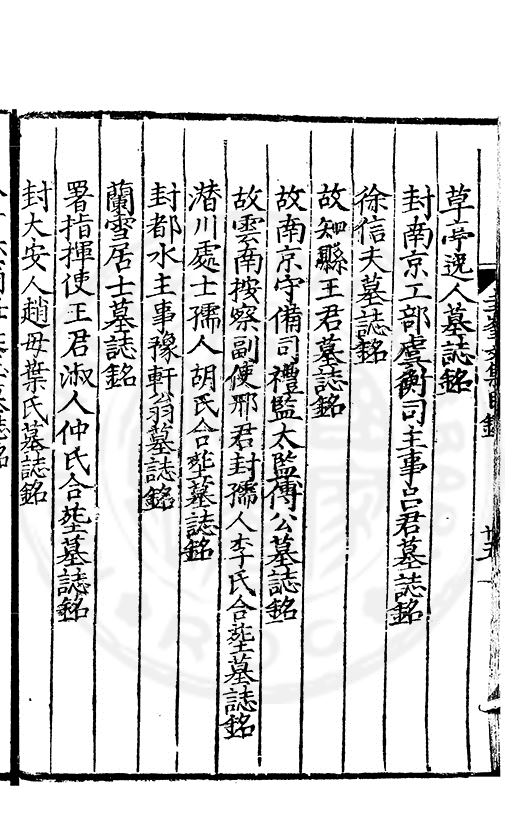 草亭逸人墓誌銘
封南京工部虞衡司主事呂君墓誌銘
徐信夫墓誌銘
故知縣王君墓誌銘
故南京守備司禮監太監傅公墓誌銘
故雲南按察副使邢君封孺人李氏合塟墓誌銘
潛川處士孺人胡氏合塟墓誌銘
封都水主事豫軒翁墓誌銘
蘭雪居士墓誌銘
署指揮使王君淑人仲氏合塟墓誌銘
封大安人趙母葉氏墓誌銘